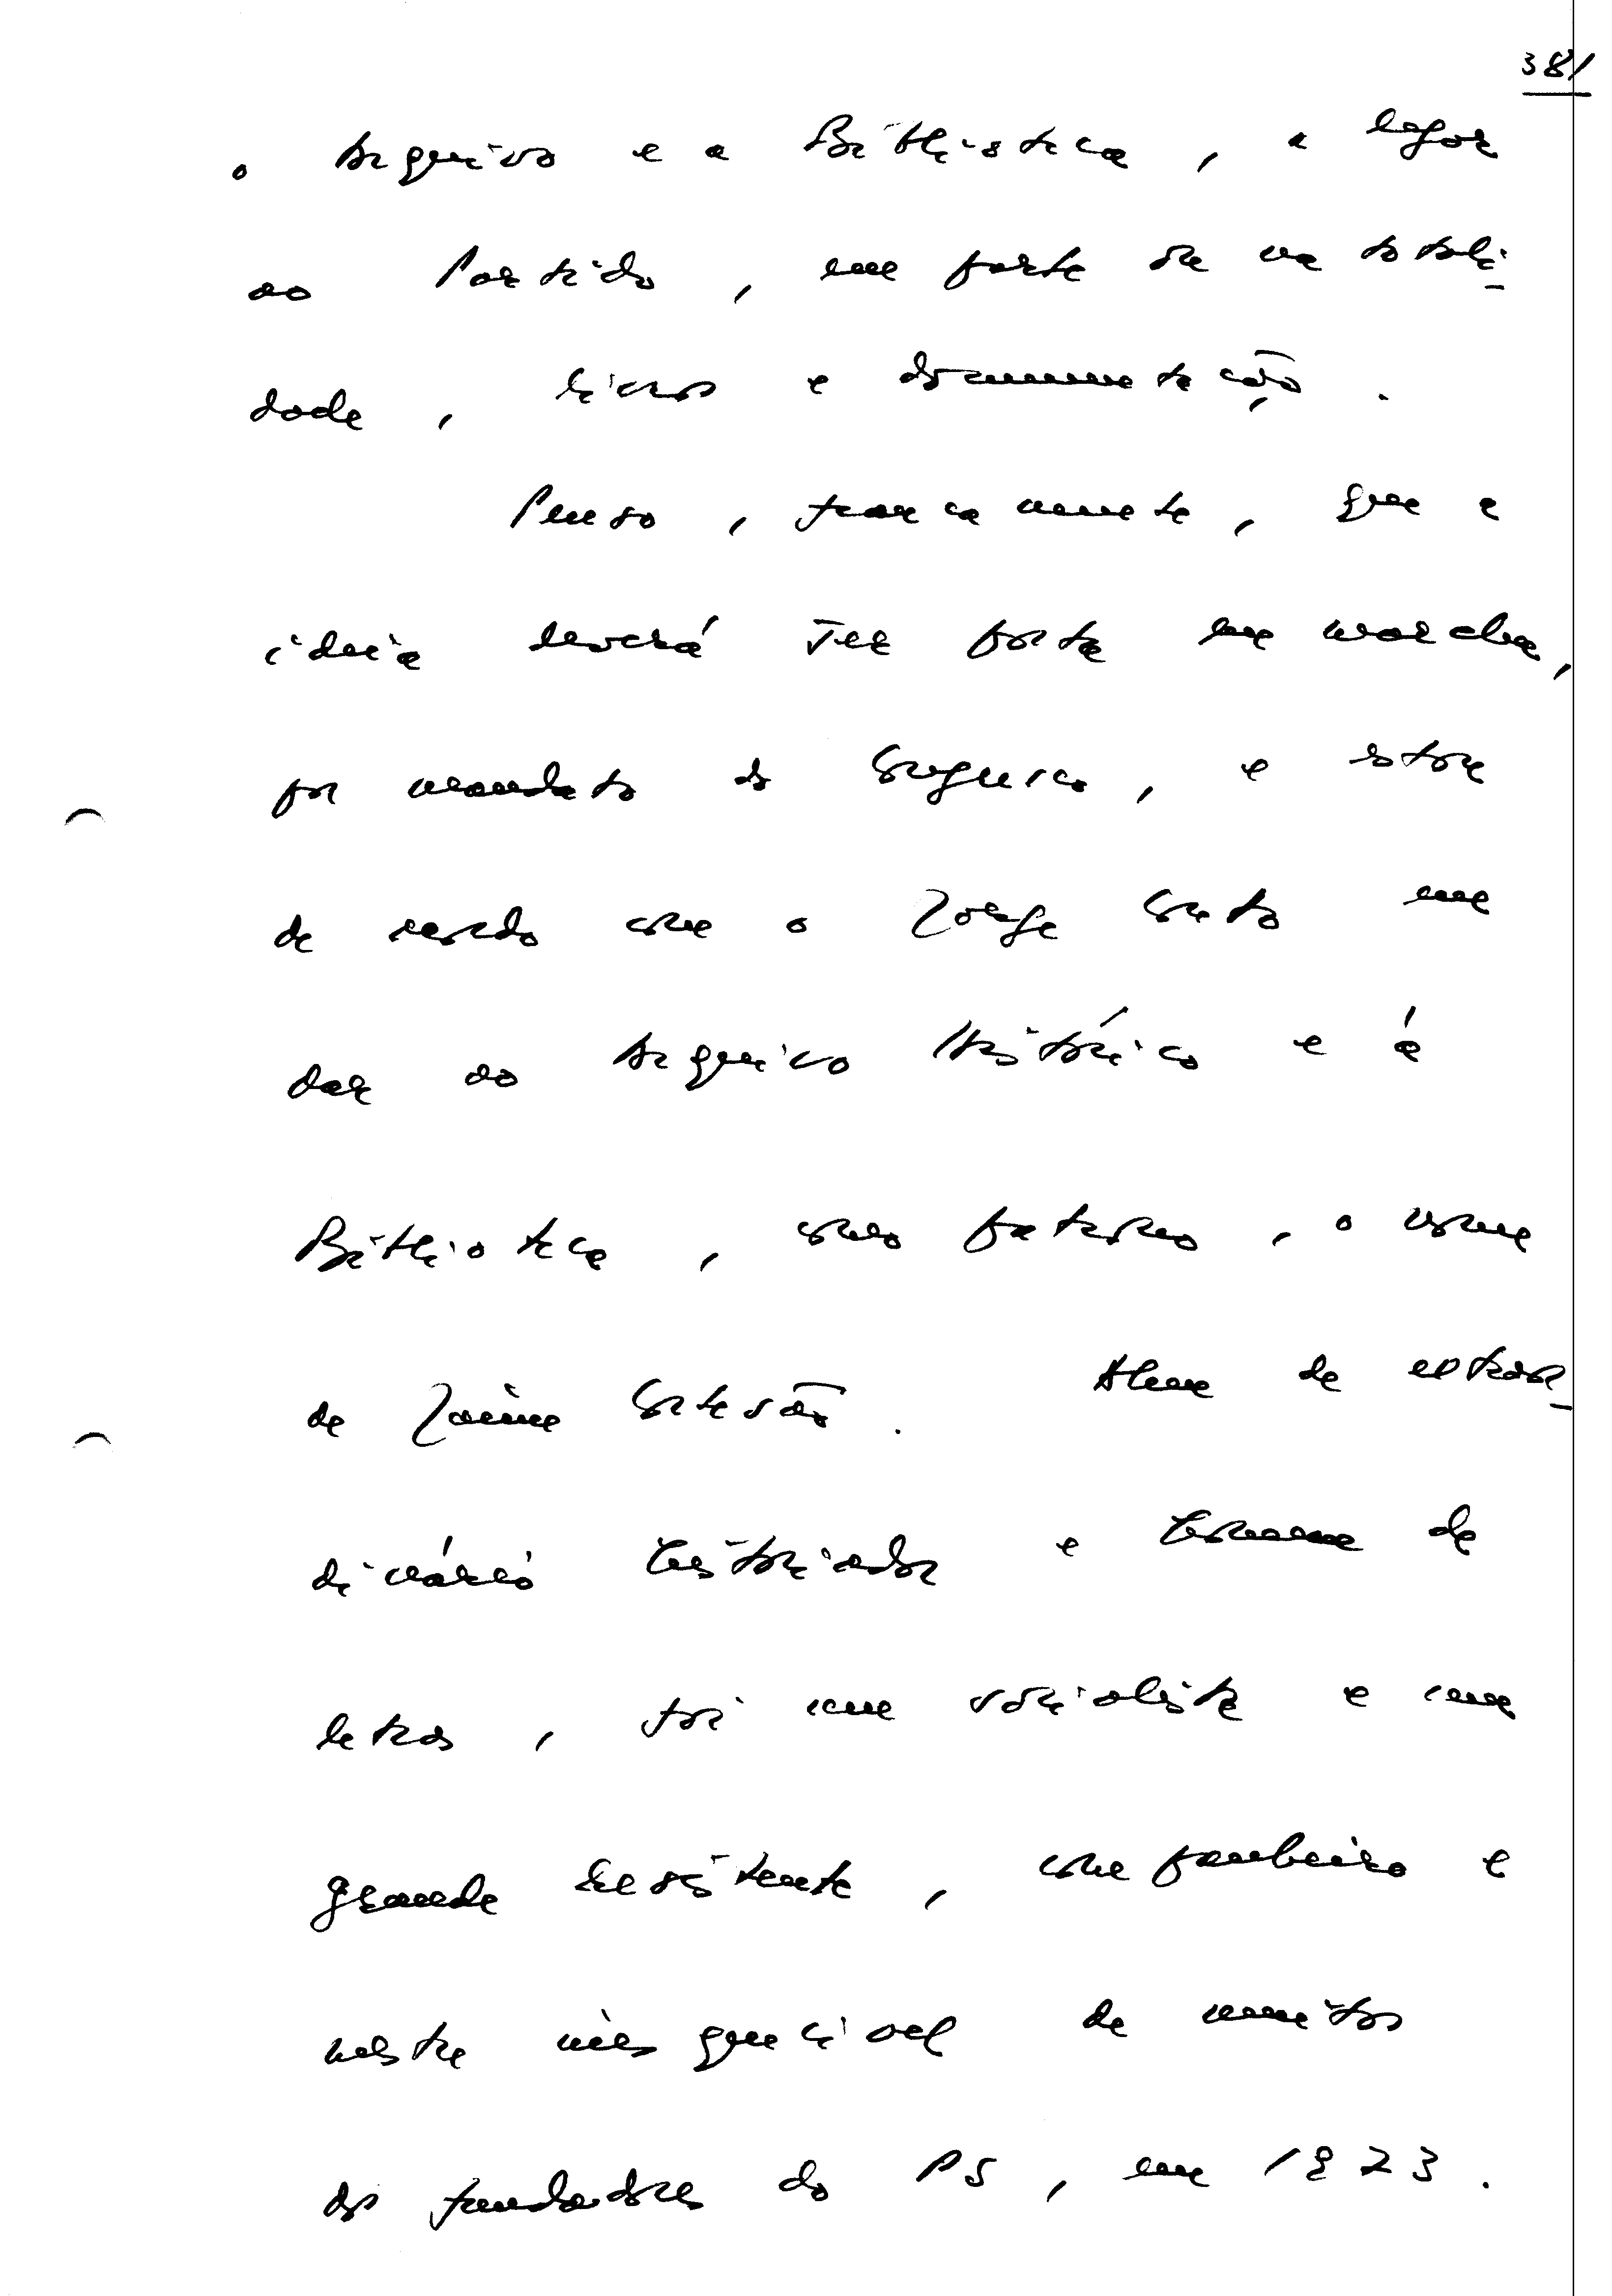 38/
o Arquivo e a Biblioteca, a legar
ao Partido, em parte ou na totali-
dade, livros e documentação.
Penso, francamente, que a
ideia deverá ser posta em marcha,
por mandato do Congresso, e estou
de acordo com o Jorge Couto em
dar ao Arquivo Histórico e à
Biblioteca, como patrono, o nome
de Jaime Cortesão. Além de extraor-
dinário historiador e homem de
letras, foi um socialista e um
grande resistente, companheiro e
mestre inesquecível de muitos
dos fundadores do PS, em 1973.